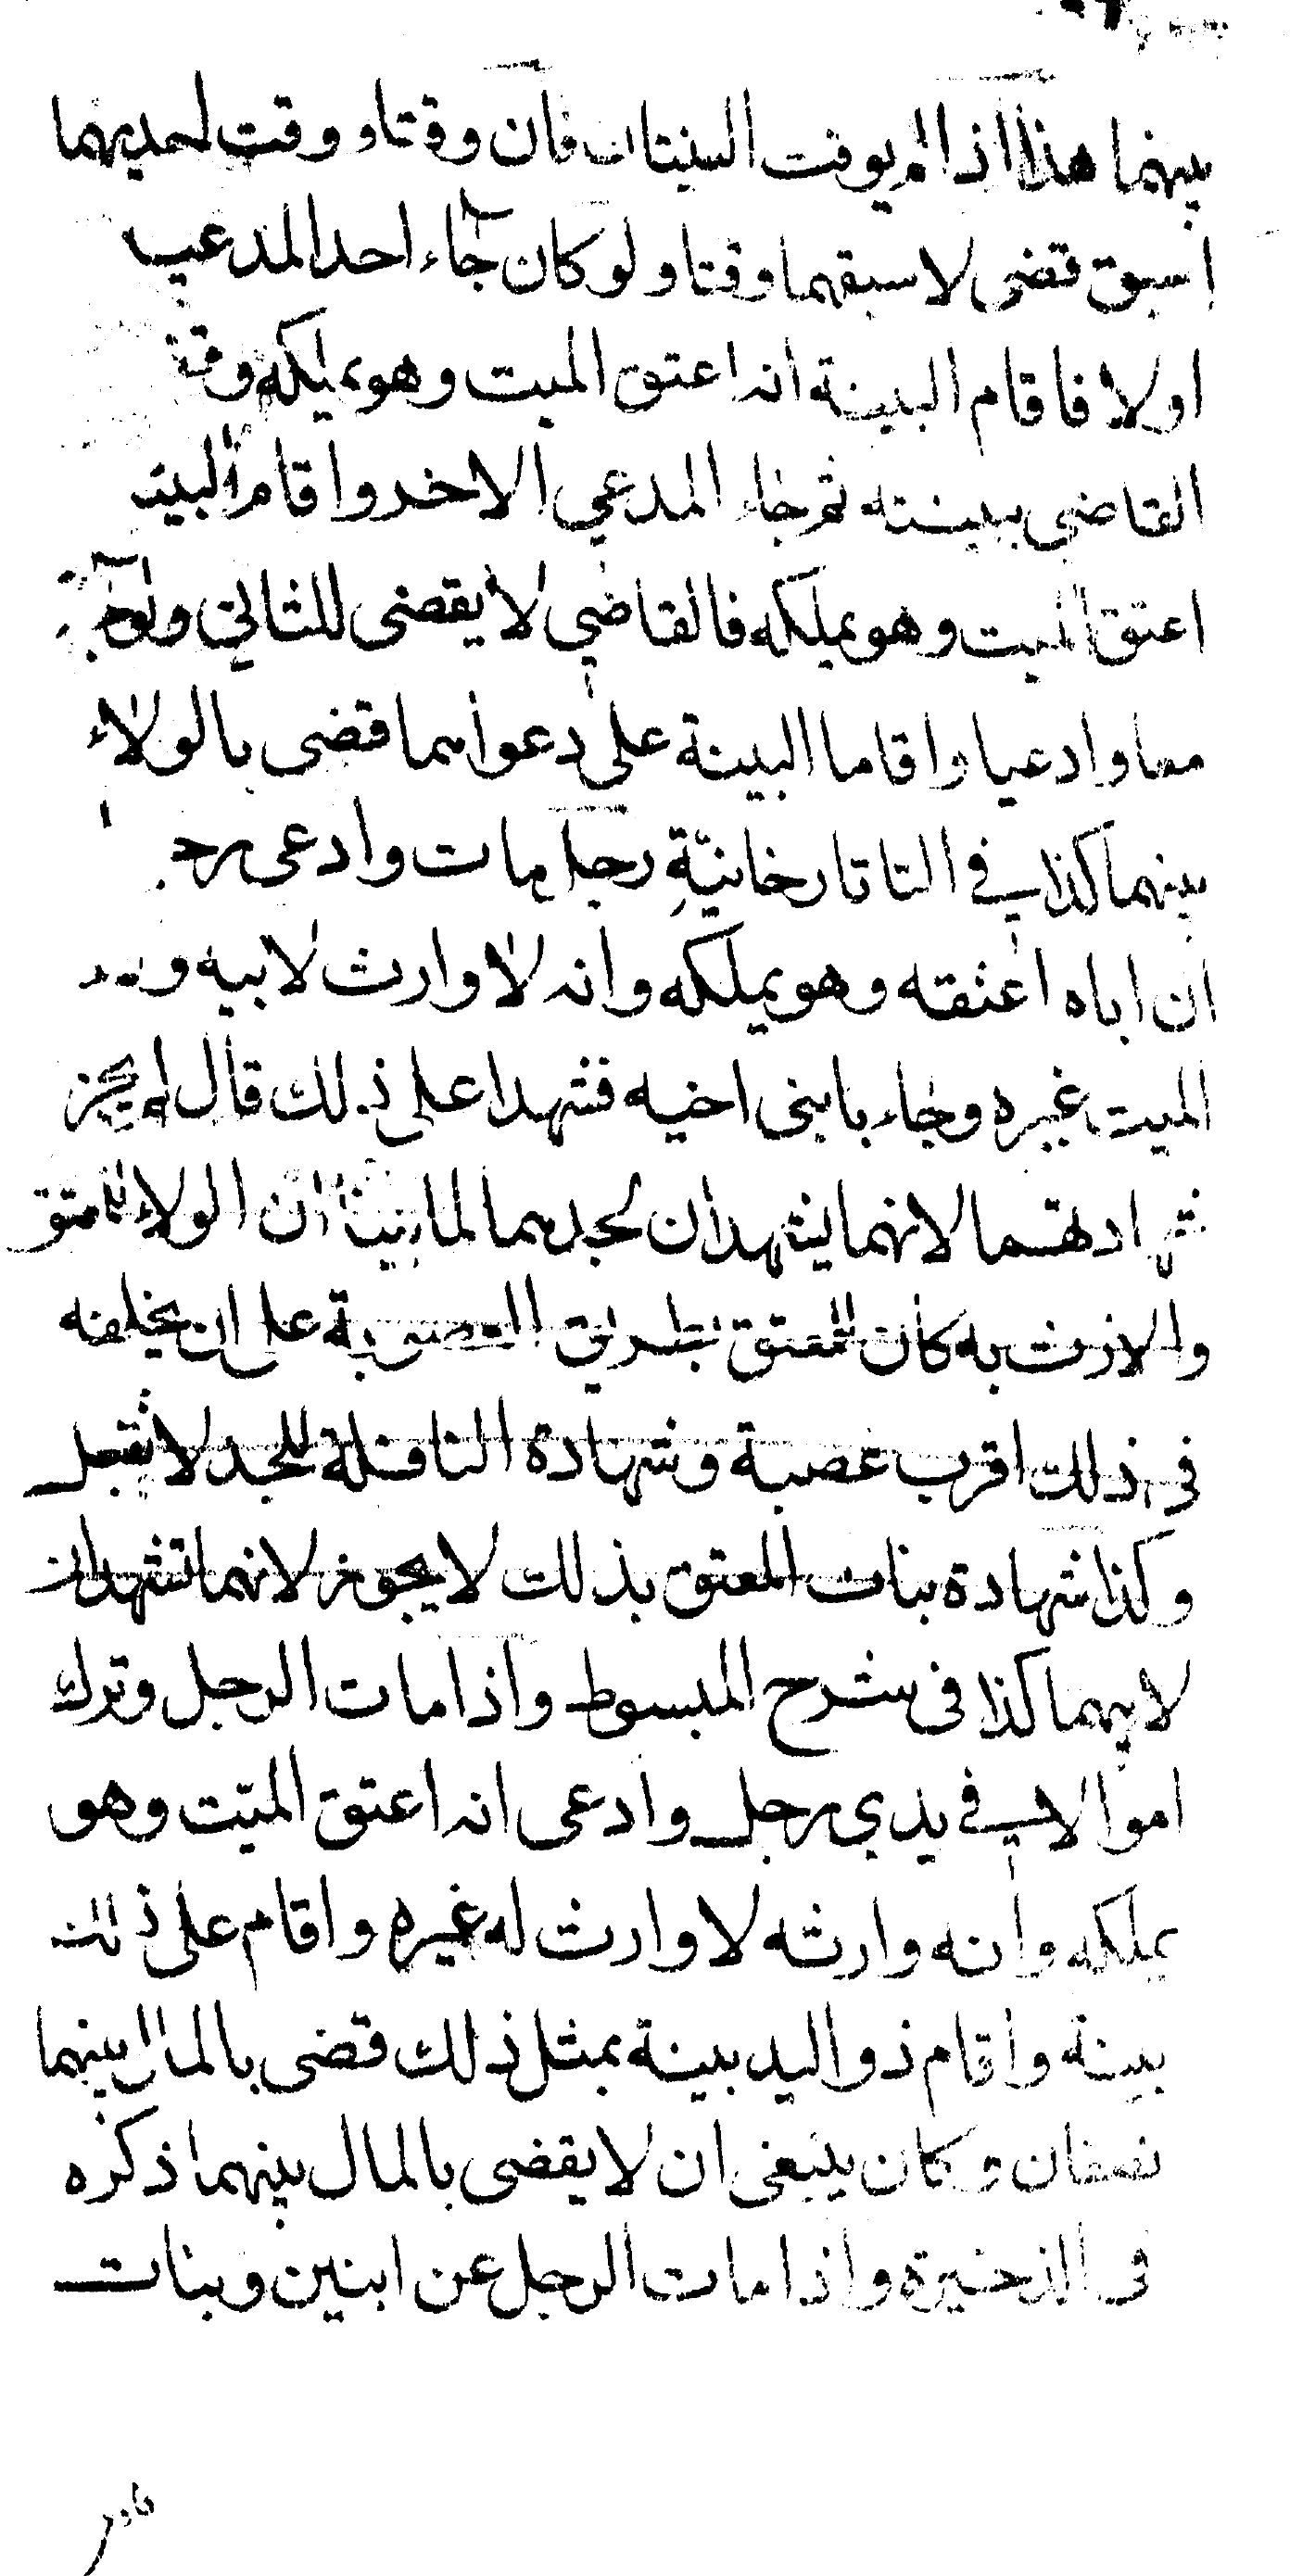 بينهما هذا اذا لم يوقت البينتان فان وقتا و وقت احديهما
اسبق قضى لاسبقهما وقتا ولو كان جاء احد المدعيين
اولا فاقام البينة انه اعتق الميت وهو يملكه وقضى
القاضي ببينته ثم جاء المدعي الاخر واقام البينة
اعتق الميت وهو يملكه فالقاضي لا يقضى للثاني ولو
معا وادعيا واقاما البينة على دعواهما قضى بالولاء
بينهما كذا في التاتارخانيّة رجل مات وادعى رجل
ان اباه اعتقه وهو يملكه وانه لا وارث لابيه و
الميت غيره وجاء بابنى اخيه فشهدا على ذلك قال لم يجز
شهادتهما لانهما يشهدان لجدهما لما بينا ان الولاء للمعتق
والارث به كان للمعتق بطريق العصوبة على ان يخلفه
فى ذلك اقرب عصبة وشهادة النافلة للجد لا تقبل
وكذا شهادة بنات المعتق بذلك لا يجوز لانهما تشهدان
لابيهما كذا فى شرح المبسوط واذا مات الرجل وترك
اموالا في يدي رجل وادعى انه اعتق الميّت وهو
يملكه وانه وارثه لا وارث له غيره واقام على ذلك
بينة واقام ذو اليد بينة بمثل ذلك قضى بالمال بينهما
نصفان وكان ينبغى ان لا يقضى بالمال بينهما ذكره
فى الذخيرة واذا مات الرجل عن ابنين وبنات